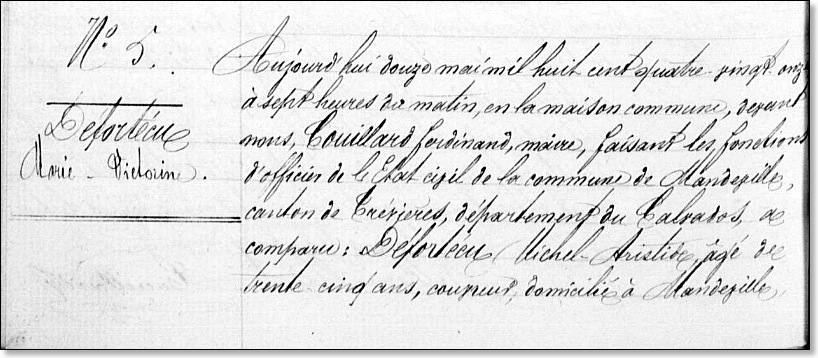 Nº 5.
Defortécu
Marie - Victorine.
Aujourd'hui douze mai mil huit cent quatre-vingt onze
à sept heures du matin, en la maison commune, devant
nous, Couillard Ferdinand, maire, faisant les fonctions
d'officier de l'Etat civil de la commune de Mandeville,
canton de Trévières, département du Calvados, a
comparu : Defortécu Michel-Aristide, âgé de
trente-cinq ans, couvreur, domicilié à Mandeville,